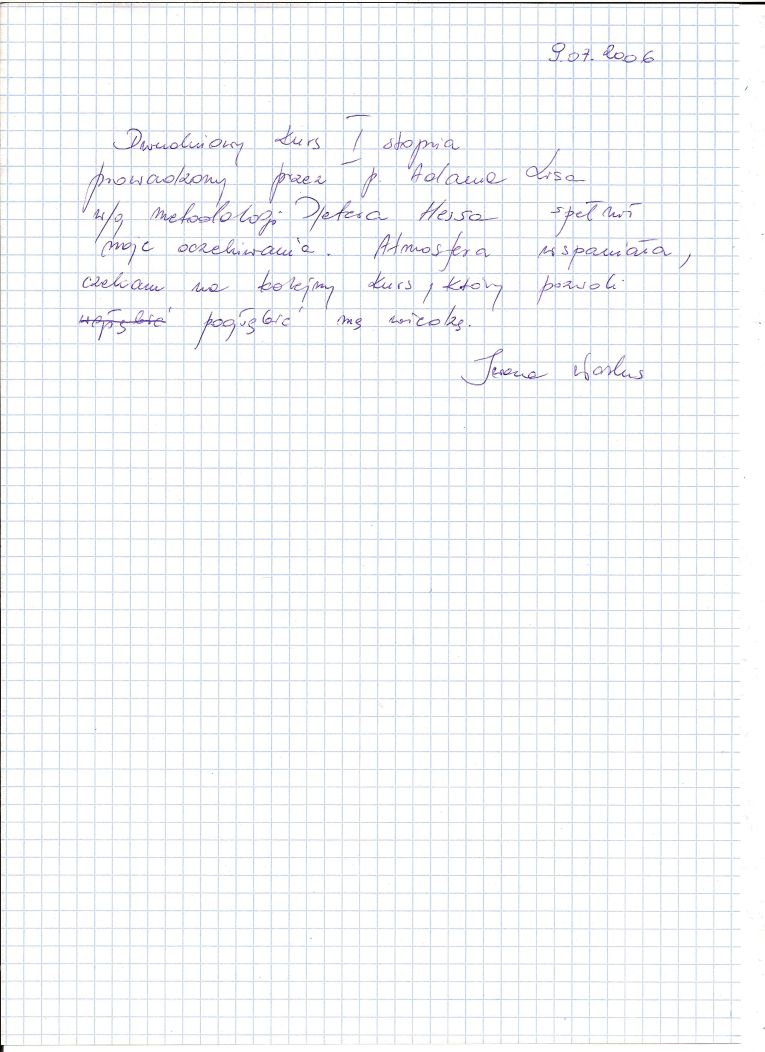 9.07.2006
Dwudniowy kurs I stopnia
prowadzony przez p. Adama Lisa
w/g metodologi Dietera Hessa spełnił
moje oczekiwania. Atmosfera wspaniała,
czekam na kolejny kurs, który pozwoli
wgłębić pogłębić mą wiedzę.
Iwona